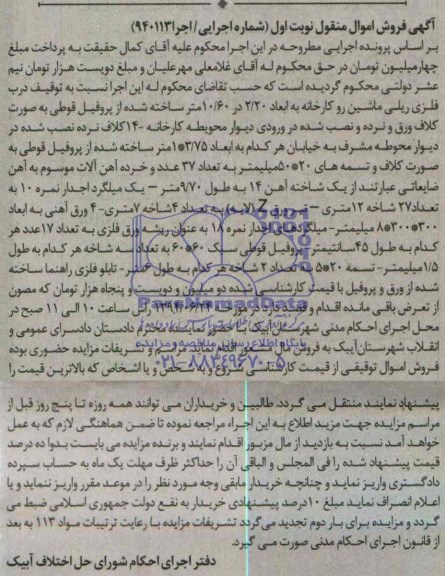 آگهی فروش اموال منقول نوبت اول (شماره اجرایی/اجرا۹۴۰۱۱۳)
بر اساس پرونده اجرایی مطروحه در این اجرا محکوم علیه آقای کمال حقیقت به پرداخت مبلغ
چهارمیلیون تومان در حق محکوم له آقای غلامعلی مهرعلیان و مبلغ دویست هزار تومان نیم
عشر دولتی محکوم گردیده است که حسب تقاضای محکوم له این اجرا نسبت به توقیف درب
فلزی ریلی ماشین رو کارخانه به ابعاد ۲/۲۰ در ۱۰/۶۰متر ساخته شده از پروفیل قوطی به صورت
کلاف ورق و نرده و نصب شده در ورودی دیوار محوطه کارخانه -۱۴کلاف نرده نصب شده در
دیوار محوطه مشرف به خیابان هر کدام به ابعاد ۳/۷۵*۱متر ساخته شده از پروفیل قوطی به
صورت کلاف و تسمه های ۲۰*۵۰میلیمتر به تعداد ۳۷ عدد و خرده آهن آلات موسوم به آهن
ضایعاتی عبارتند از یک شاخته آهن ۱۴ به طول ۹/۷۰متر – یک میلگرد اجدار نمره ۱۰ به
تعداد۲۷ شاخه ۱۲متری – ورق Z (لابه) به تعداد ۴شاخه ۷متری- ۴ ورق آهنی به ابعاد
۳۰۰*۳۰۰*۸ میلیمتر- میلگردهای اجدار نمره ۱۸ به عنوان ریشه ورق فلزی به تعداد ۱۷عدد هر
کدام به طول ۴۵سانتیمتر-پروفیل قوطی سبک ۶۰*۶۰ به تعداد سه شاخه هر کدام به طول
۱/۵میلیمتر- تسمه ۲۰*۵ به تعداد ۲ شاخه هر کدام به طول ۶متر- تابلو فلزی راهنما ساخته
شده از ورق و پروفیل با قیمت کارشناسی شده دو میلیون و دویست و پنجاه هزار تومان که مصون
از تعرض باقی مانده اقدام و قصد دارد در مورخه ۱۳۹۴/۰۶/۲۴ راس ساعت ۱۰ الی ۱۱ صبح در
محل اجرای احکام مدنی شهرستان آبیک با حضور نماینده محترم دادستان دادسرای عمومی و
انقلاب شهرستان آبیک به فروش مال منقول اقدام نماید مراسم و تشریفات مزایده حضوری بوده
فروش اموال توقیفی از قیمت کارشناسی شروع و به شخص و یا اشخاص که بالاترین قیمت را
پیشنهاد نمایند منتقل می گردد. طالبین و خریداران می توانند همه روزه تا پنج روز قبل از
مراسم مزایده جهت مزید اطلاع به این اجراء مراجعه نموده تا ضمن هماهنگی لازم که به عمل
خواهد آمد نسبت به بازدید از مال مزبور اقدام نمایند و برنده مزایده می بایست بدوا ده درصد
قیمت پیشنهاد شده را فی المجلس و الباقی آن را حداکثر ظرف مهلت یک ماه به حساب سپرده
دادگستری واریز نماید و چنانچه خریدار مابقی وجه مورد نظر را در موعد مقرر واریز ننماید و یا
اعلام انصراف نماید مبلغ ۱۰درصد پیشنهادی خریدار به نفع دولت جمهوری اسلامی ضبط می
گردد و مزایده برای بار دوم تجدید می‌گردد تشریفات مزایده با رعایت ترتیبات مواد ۱۱۳ به بعد
از قانون اجرای احکام مدنی صورت می گیرد.
دفتر اجرای احکام شورای حل اختلاف آبیک
ParsNamadData
پایگاه اطلاع رسانی مناقصه و مزایده
۰۲۱-۸۸۳۴۹۶۷۰-۵